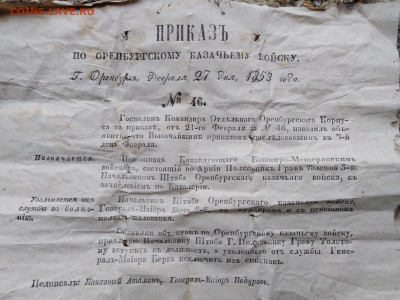 COINS.LAVE.RU
ПРИКАЗЪ
ПО ОРЕНБУРГСКОМУ КАЗАЧЬЕМУ ВОЙСКУ.
Г. Оренбургъ, Февраля 27 дня, 1853 года.
№ 46.
Господинъ Командиръ Отдѣльнаго Оренбургскаго Корпу-
са въ приказѣ, отъ 21-го Февраля за № 46, изволилъ объ-
явить, что Высочайшимъ приказомъ, послѣдовавшимъ въ 7-й
день Февраля.
Назначается. Помощникъ Командующаго Башкиро-Мещерякскимъ
войскомъ, состоящій по Арміи Полковникъ Графъ Толстой 3-й,
Начальникомъ Штаба Оренбургскаго казачьяго войска, съ
зачисленіемъ по Кавалеріи.
Увольняется отъ Начальникъ Штаба Оренбургскаго казачьяго войска,
службы за болѣз- Генералъ-Маіоръ и съ пенсіономъ
нію. жалованья.
Объявляя объ этомъ по Оренбургскому казачьему войску,
предписываю Начальнику Штаба Г. Полковнику Графу Толсто-
му вступить въ должность, а уволеннаго отъ службы Гене-
ралъ-Маіора исключить изъ списковъ.
Подписалъ: Наказный Атаманъ, Генералъ-Маіоръ Падуровъ.